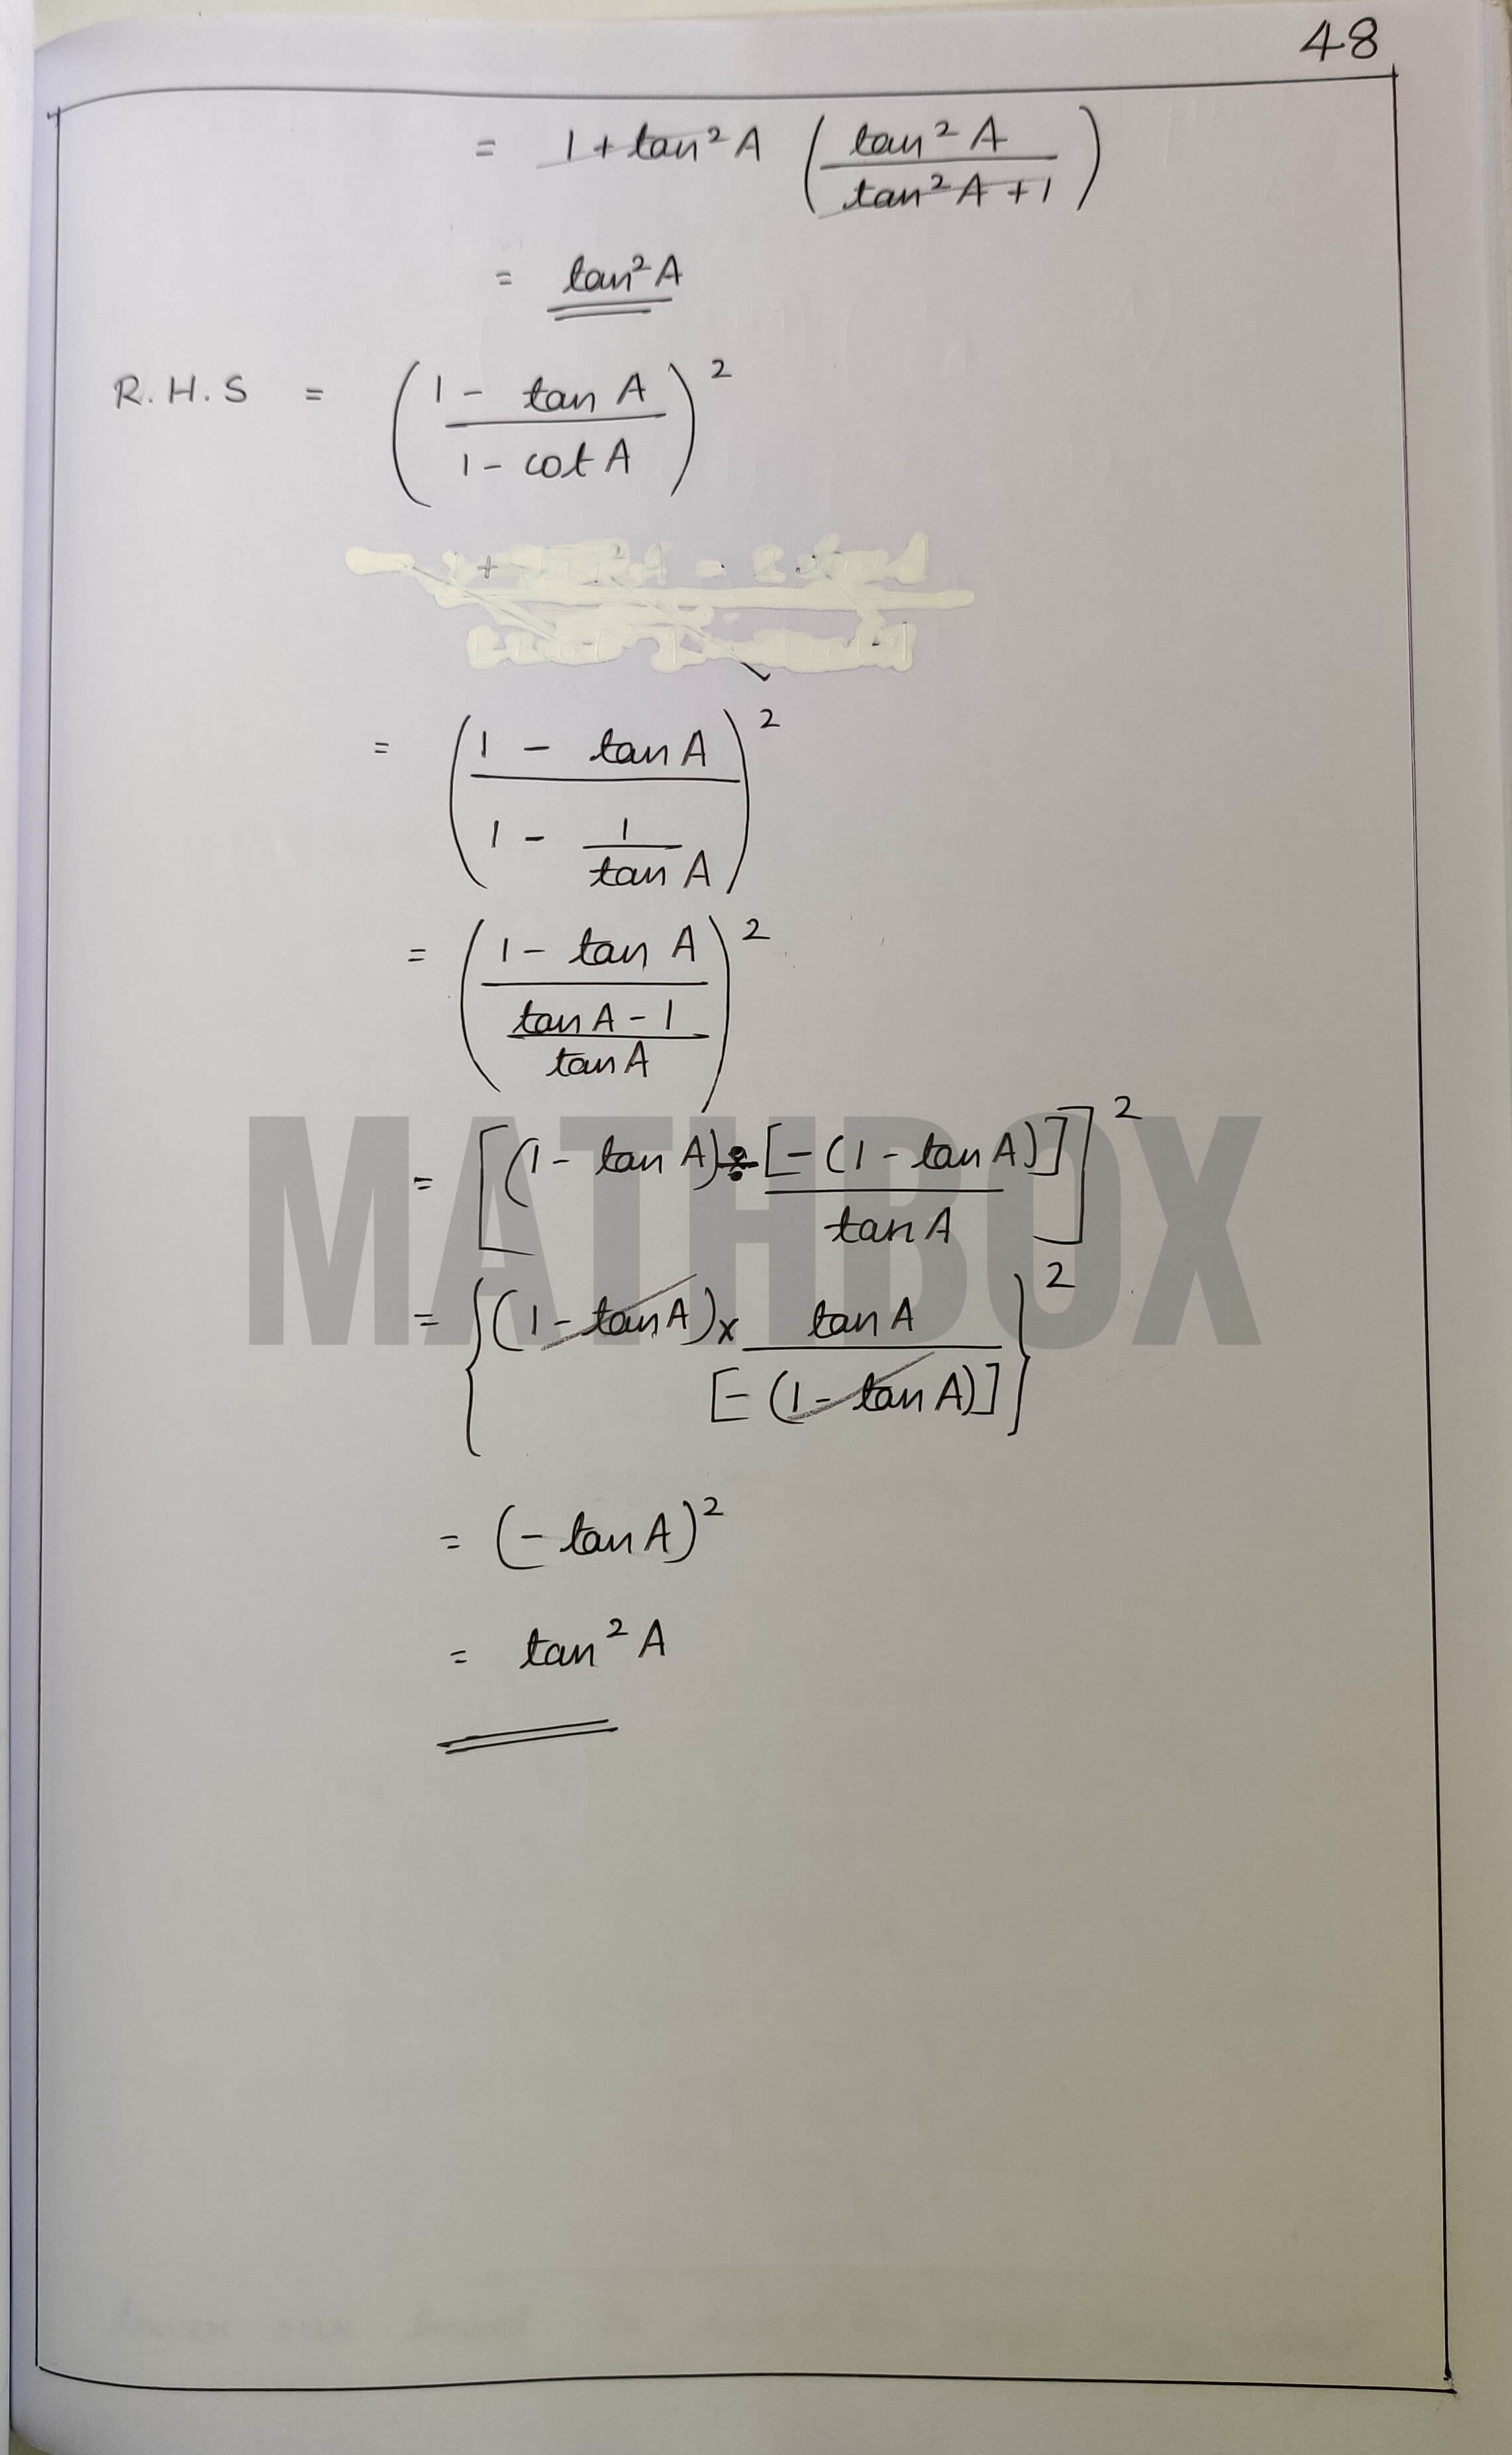 48
= 1 + tan² A ( tan² A / tan² A + 1 )
= tan² A
R.H.S = ( 1 - tan A / 1 - cot A )²
= ( 1 - tan A / 1 - 1 / tan A )²
= ( 1 - tan A / tan A - 1 / tan A )²
= [ (1 - tan A) ÷ [ - (1 - tan A) ] / tan A ]²
MATHBOX
= { (1 - tan A) × tan A / [ - (1 - tan A) ] }²
= ( - tan A )²
= tan² A